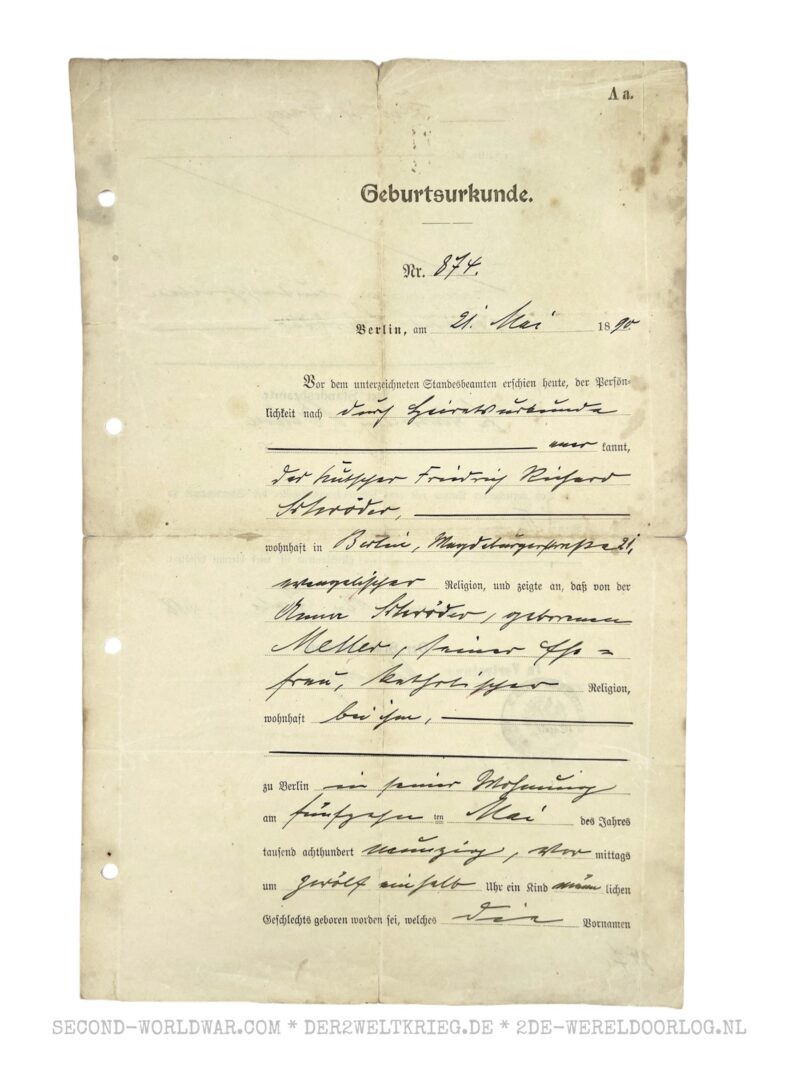 A a.
Geburtsurkunde.
Nr. 874.
Berlin, am 21. Mai 1890.
Vor dem unterzeichneten Standesbeamten erschien heute, der Persön-
lichkeit nach durch Heiratsurkunde
aner kannt,
der Kutscher Friedrich Richard
Schröder,
wohnhaft in Berlin, Magdeburgerstraße 21,
evangelischer Religion, und zeigte an, daß von der
Anna Schröder, geborenen
Meller, seiner Ehe=
frau, katholischer Religion,
wohnhaft bei ihm,
zu Berlin in seiner Wohnung
am fünfzehn ten Mai des Jahres
tausend achthundert neunzig, Vor mittags
um zwölf einhalb Uhr ein Kind männ lichen
Geschlechts geboren worden sei, welches die Vornamen
SECOND-WORLDWAR.COM * DER2WELTKRIEG.DE * 2DE-WERELDOORLOG.NL